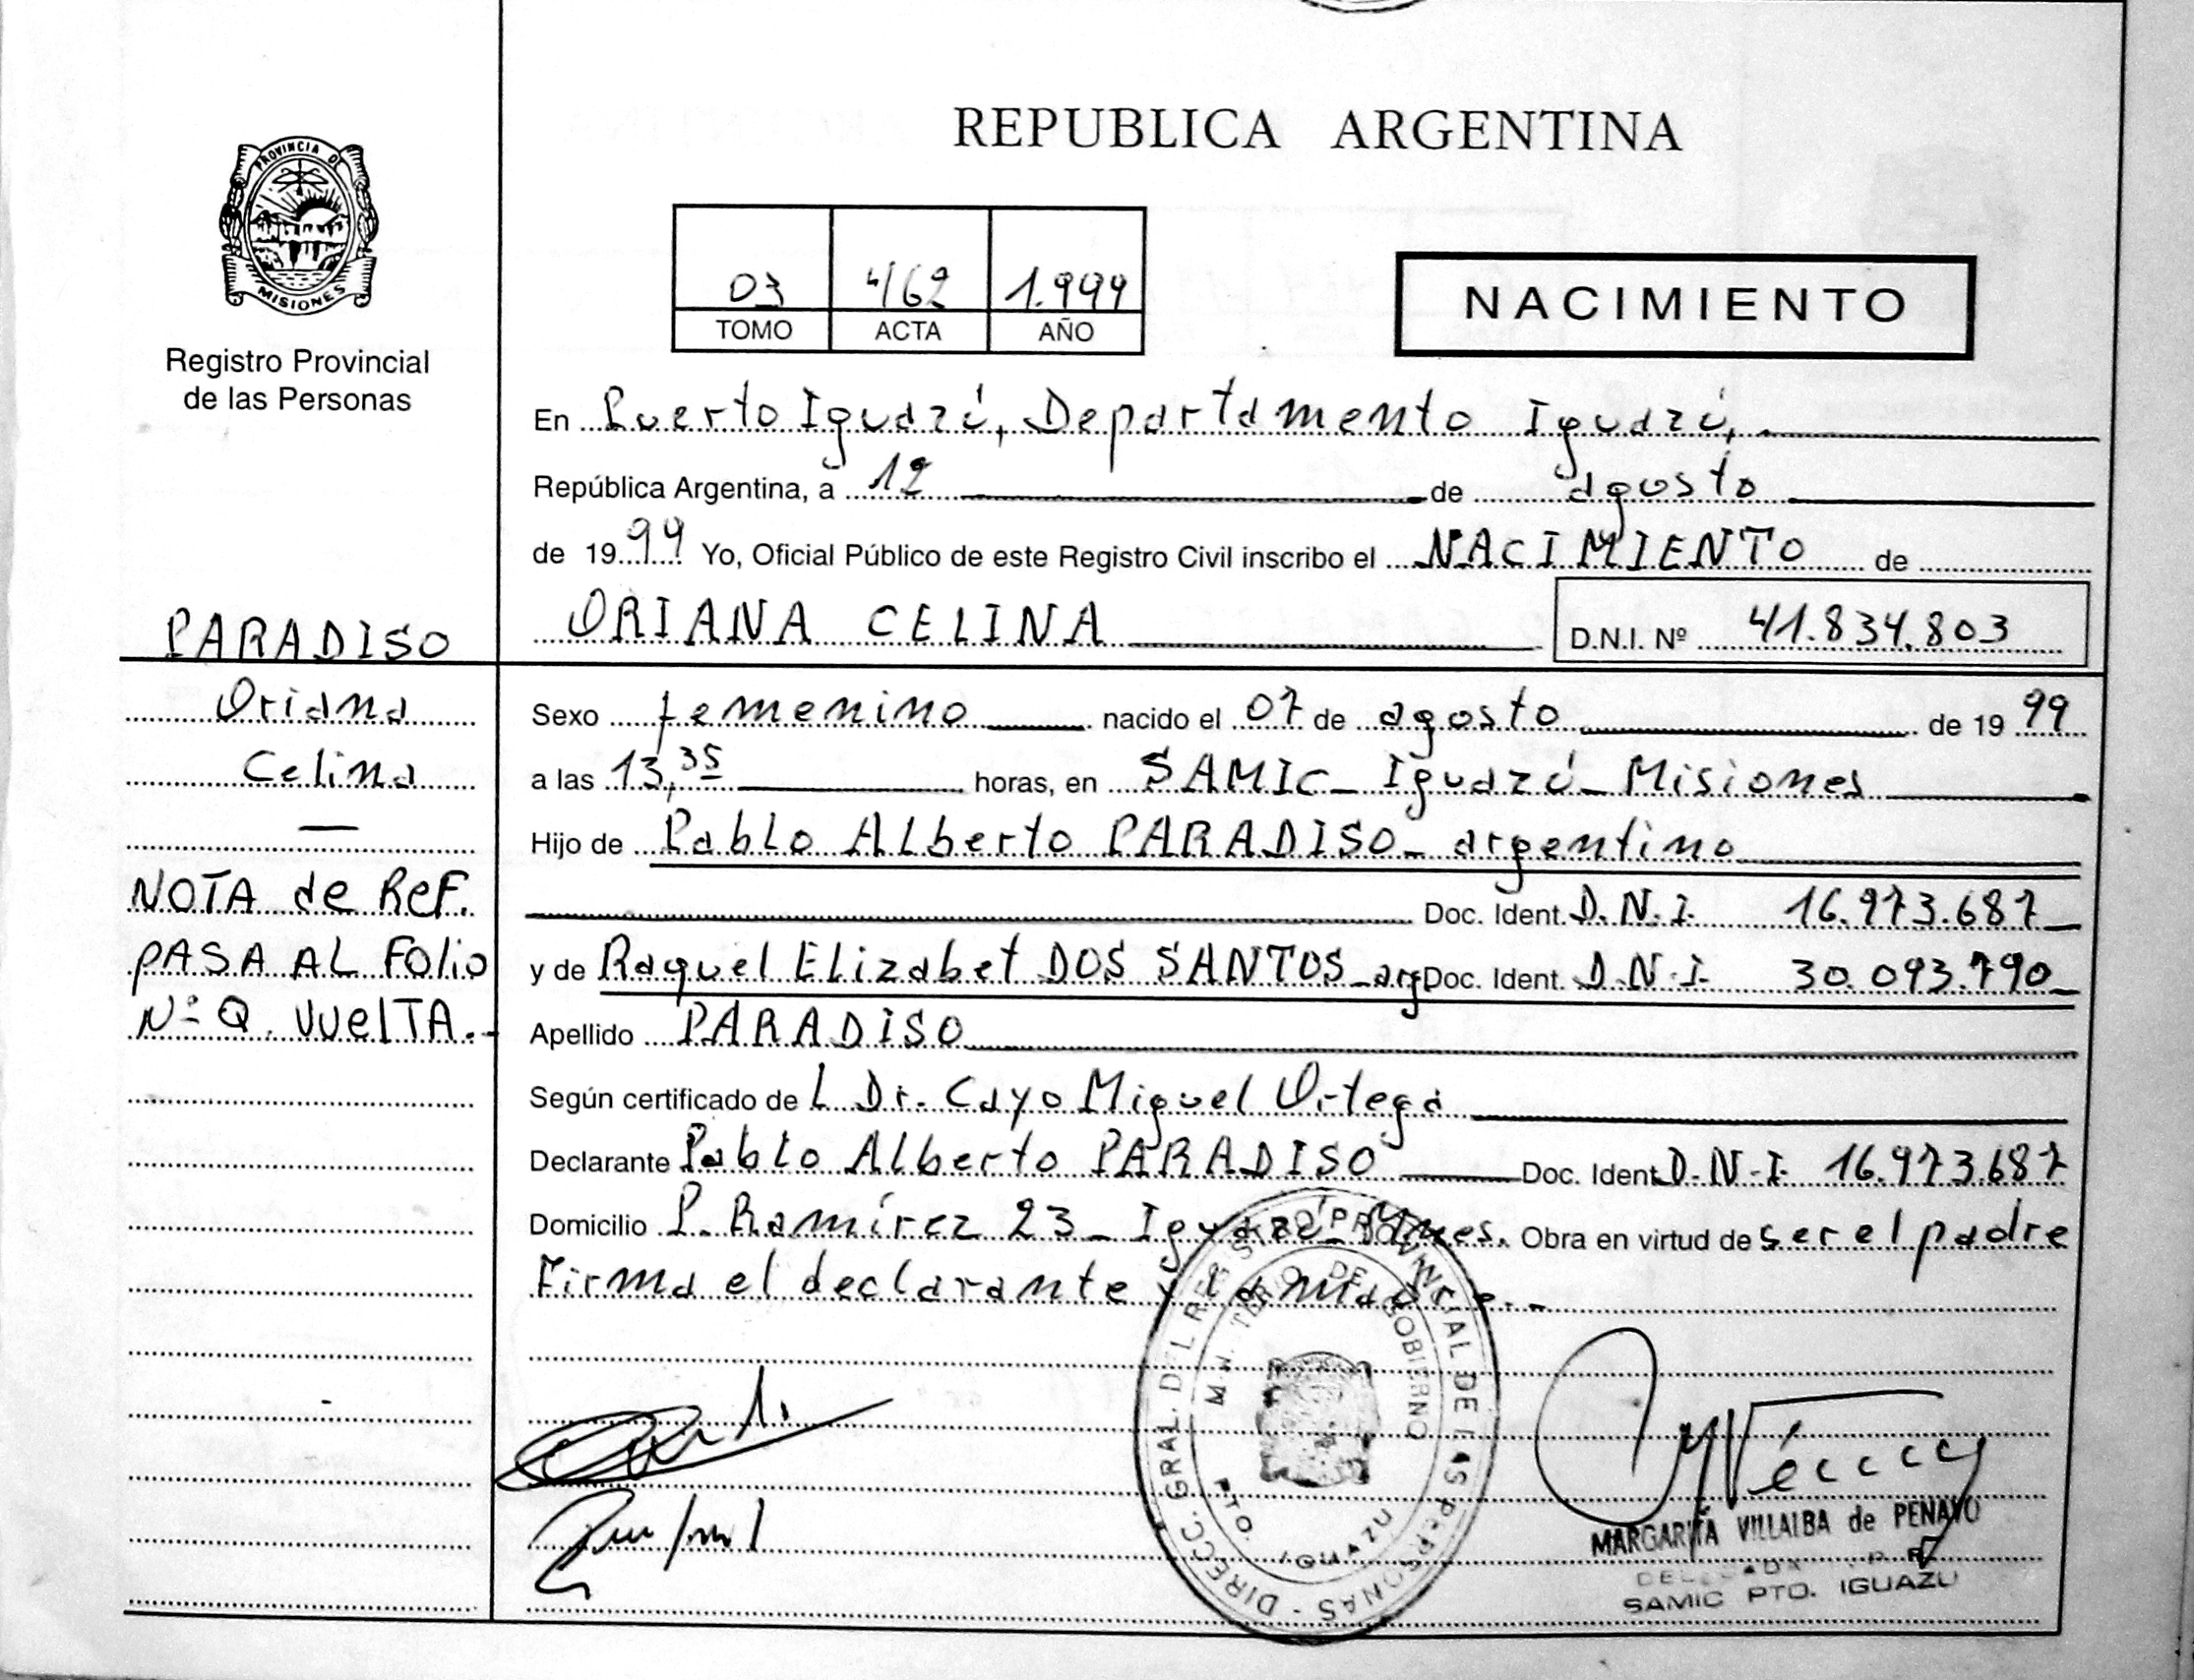 REPUBLICA ARGENTINA
PROVINCIA DE
MISIONES
Registro Provincial
de las Personas
03 462 1.999
TOMO ACTA AÑO
NACIMIENTO
En Puerto Iguazú, Departamento Iguazú,
República Argentina, a 12 de agosto
de 1999 Yo, Oficial Público de este Registro Civil inscribo el NACIMIENTO de
ORIANA CELINA D.N.I. Nº 41.834.803
PARADISO
Oriana
Celina
NOTA de ReF.
PASA AL Folio
Nº Q. VUelTA.-
Sexo femenino nacido el 07 de agosto de 1999
a las 13,35 horas, en SAMIC - Iguazú - Misiones
Hijo de Pablo Alberto PARADISO - argentino
Doc. Ident. D.N.I. 16.973.687
y de Raquel Elizabet DOS SANTOS - arg Doc. Ident. D.N.I. 30.093.790
Apellido PARADISO
Según certificado de L Dr. Cayo Miguel Ortega
Declarante Pablo Alberto PARADISO Doc. Ident. D.N.I. 16.973.687
Domicilio P. Ramírez 23 - Iguazú - Mnes. Obra en virtud de ser el padre
Firma el declarante y la madre.-
DIRECC. GRAL. DEL REGISTRO PROVINCIAL DE LAS PERSONAS
MINISTERIO DE GOBIERNO
PTO. IGUAZU
MARGARITA VILLALBA de PENAYO
SAMIC PTO. IGUAZU